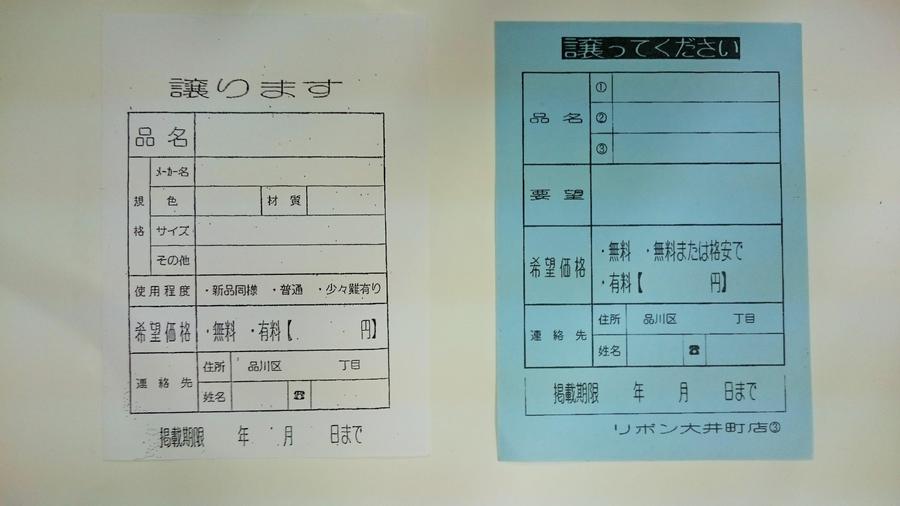 譲ります
品名
規格
メーカー名
色
材質
サイズ
その他
使用程度
・新品同様 ・普通 ・少々難有り
希望価格
・無料 ・有料【 円】
連絡先
住所 品川区 丁目
姓名 ☎
掲載期限 年 月 日まで
譲ってください
品名
①
②
③
要望
希望価格
・無料 ・無料または格安で
・有料【 円】
連絡先
住所 品川区 丁目
姓名 ☎
掲載期限 年 月 日まで
リボン大井町店③